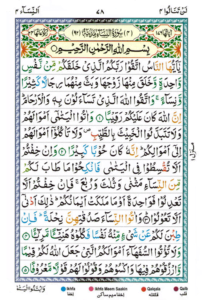 لن تنالوا ٤ ٧٨ النسآء ٤
بِسْمِ اللّٰهِ الرَّحْمٰنِ الرَّحِيْمِ
يٰۤاَيُّهَا النَّاسُ اتَّقُوْا رَبَّكُمُ الَّذِيْ خَلَقَكُمْ مِّنْ نَّفْسٍ
وَّاحِدَةٍ وَّخَلَقَ مِنْهَا زَوْجَهَا وَبَثَّ مِنْهُمَا رِجَالًا كَثِيْرًا
وَّنِسَآءً ۚ وَاتَّقُوا اللّٰهَ الَّذِيْ تَسَآءَلُوْنَ بِهٖ وَالْاَرْحَامَ ؕ
اِنَّ اللّٰهَ كَانَ عَلَيْكُمْ رَقِيْبًا ۝ وَاٰتُوا الْيَتٰمٰۤى اَمْوَالَهُمْ
وَلَا تَتَبَدَّلُوا الْخَبِيْثَ بِالطَّيِّبِ ۪ وَلَا تَاْكُلُوْۤا اَمْوَالَهُمْ
اِلٰۤى اَمْوَالِكُمْ ؕ اِنَّهٗ كَانَ حُوْبًا كَبِيْرًا ۝ وَاِنْ خِفْتُمْ
اَلَّا تُقْسِطُوْا فِي الْيَتٰمٰى فَانْكِحُوْا مَا طَابَ لَكُمْ
مِّنَ النِّسَآءِ مَثْنٰى وَثُلٰثَ وَرُبٰعَ ۚ فَاِنْ خِفْتُمْ اَلَّا
تَعْدِلُوْا فَوَاحِدَةً اَوْ مَا مَلَكَتْ اَيْمَانُكُمْ ؕ ذٰلِكَ اَدْنٰۤى
اَلَّا تَعُوْلُوْا ۝ وَاٰتُوا النِّسَآءَ صَدُقٰتِهِنَّ نِحْلَةً ؕ فَاِنْ
طِبْنَ لَكُمْ عَنْ شَيْءٍ مِّنْهُ نَفْسًا فَكُلُوْهُ هَنِيْٓـًٔا مَّرِيْٓـًٔا ۝
وَلَا تُؤْتُوا السُّفَهَآءَ اَمْوَالَكُمُ الَّتِيْ جَعَلَ اللّٰهُ لَكُمْ قِيٰمًا
وَّارْزُقُوْهُمْ فِيْهَا وَاكْسُوْهُمْ وَقُوْلُوْا لَهُمْ قَوْلًا مَّعْرُوْفًا ۝